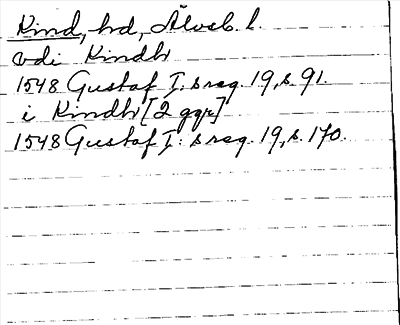 Kind, hd, Älvsb. l.
vdi Kindh
1548 Gustaf I: s reg. 19, s. 91.
i Kindh [2 ggr]
1548 Gustaf I: s reg. 19, s. 170.